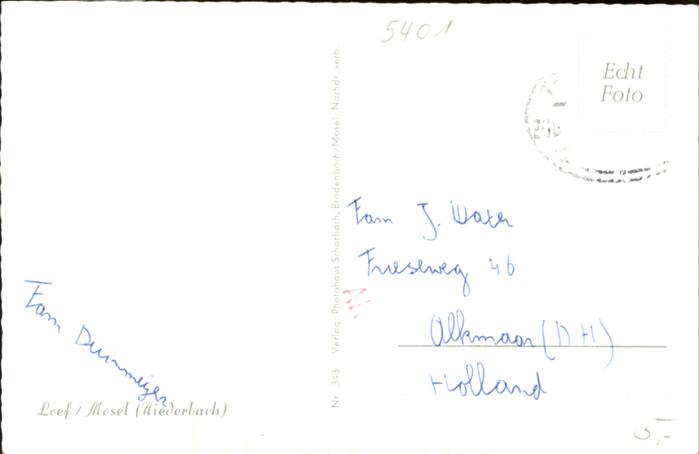 5401
Echt
Foto
Fam J. Water
Frieseweg 46
Alkmaar (N H)
Holland
Fam Duinmeijer
Loef / Mosel (Niederbach)
Nr. 343 Verlag Photohaus Scharbach, Brodenbach/Mosel. Nachdr. verb.
5,-